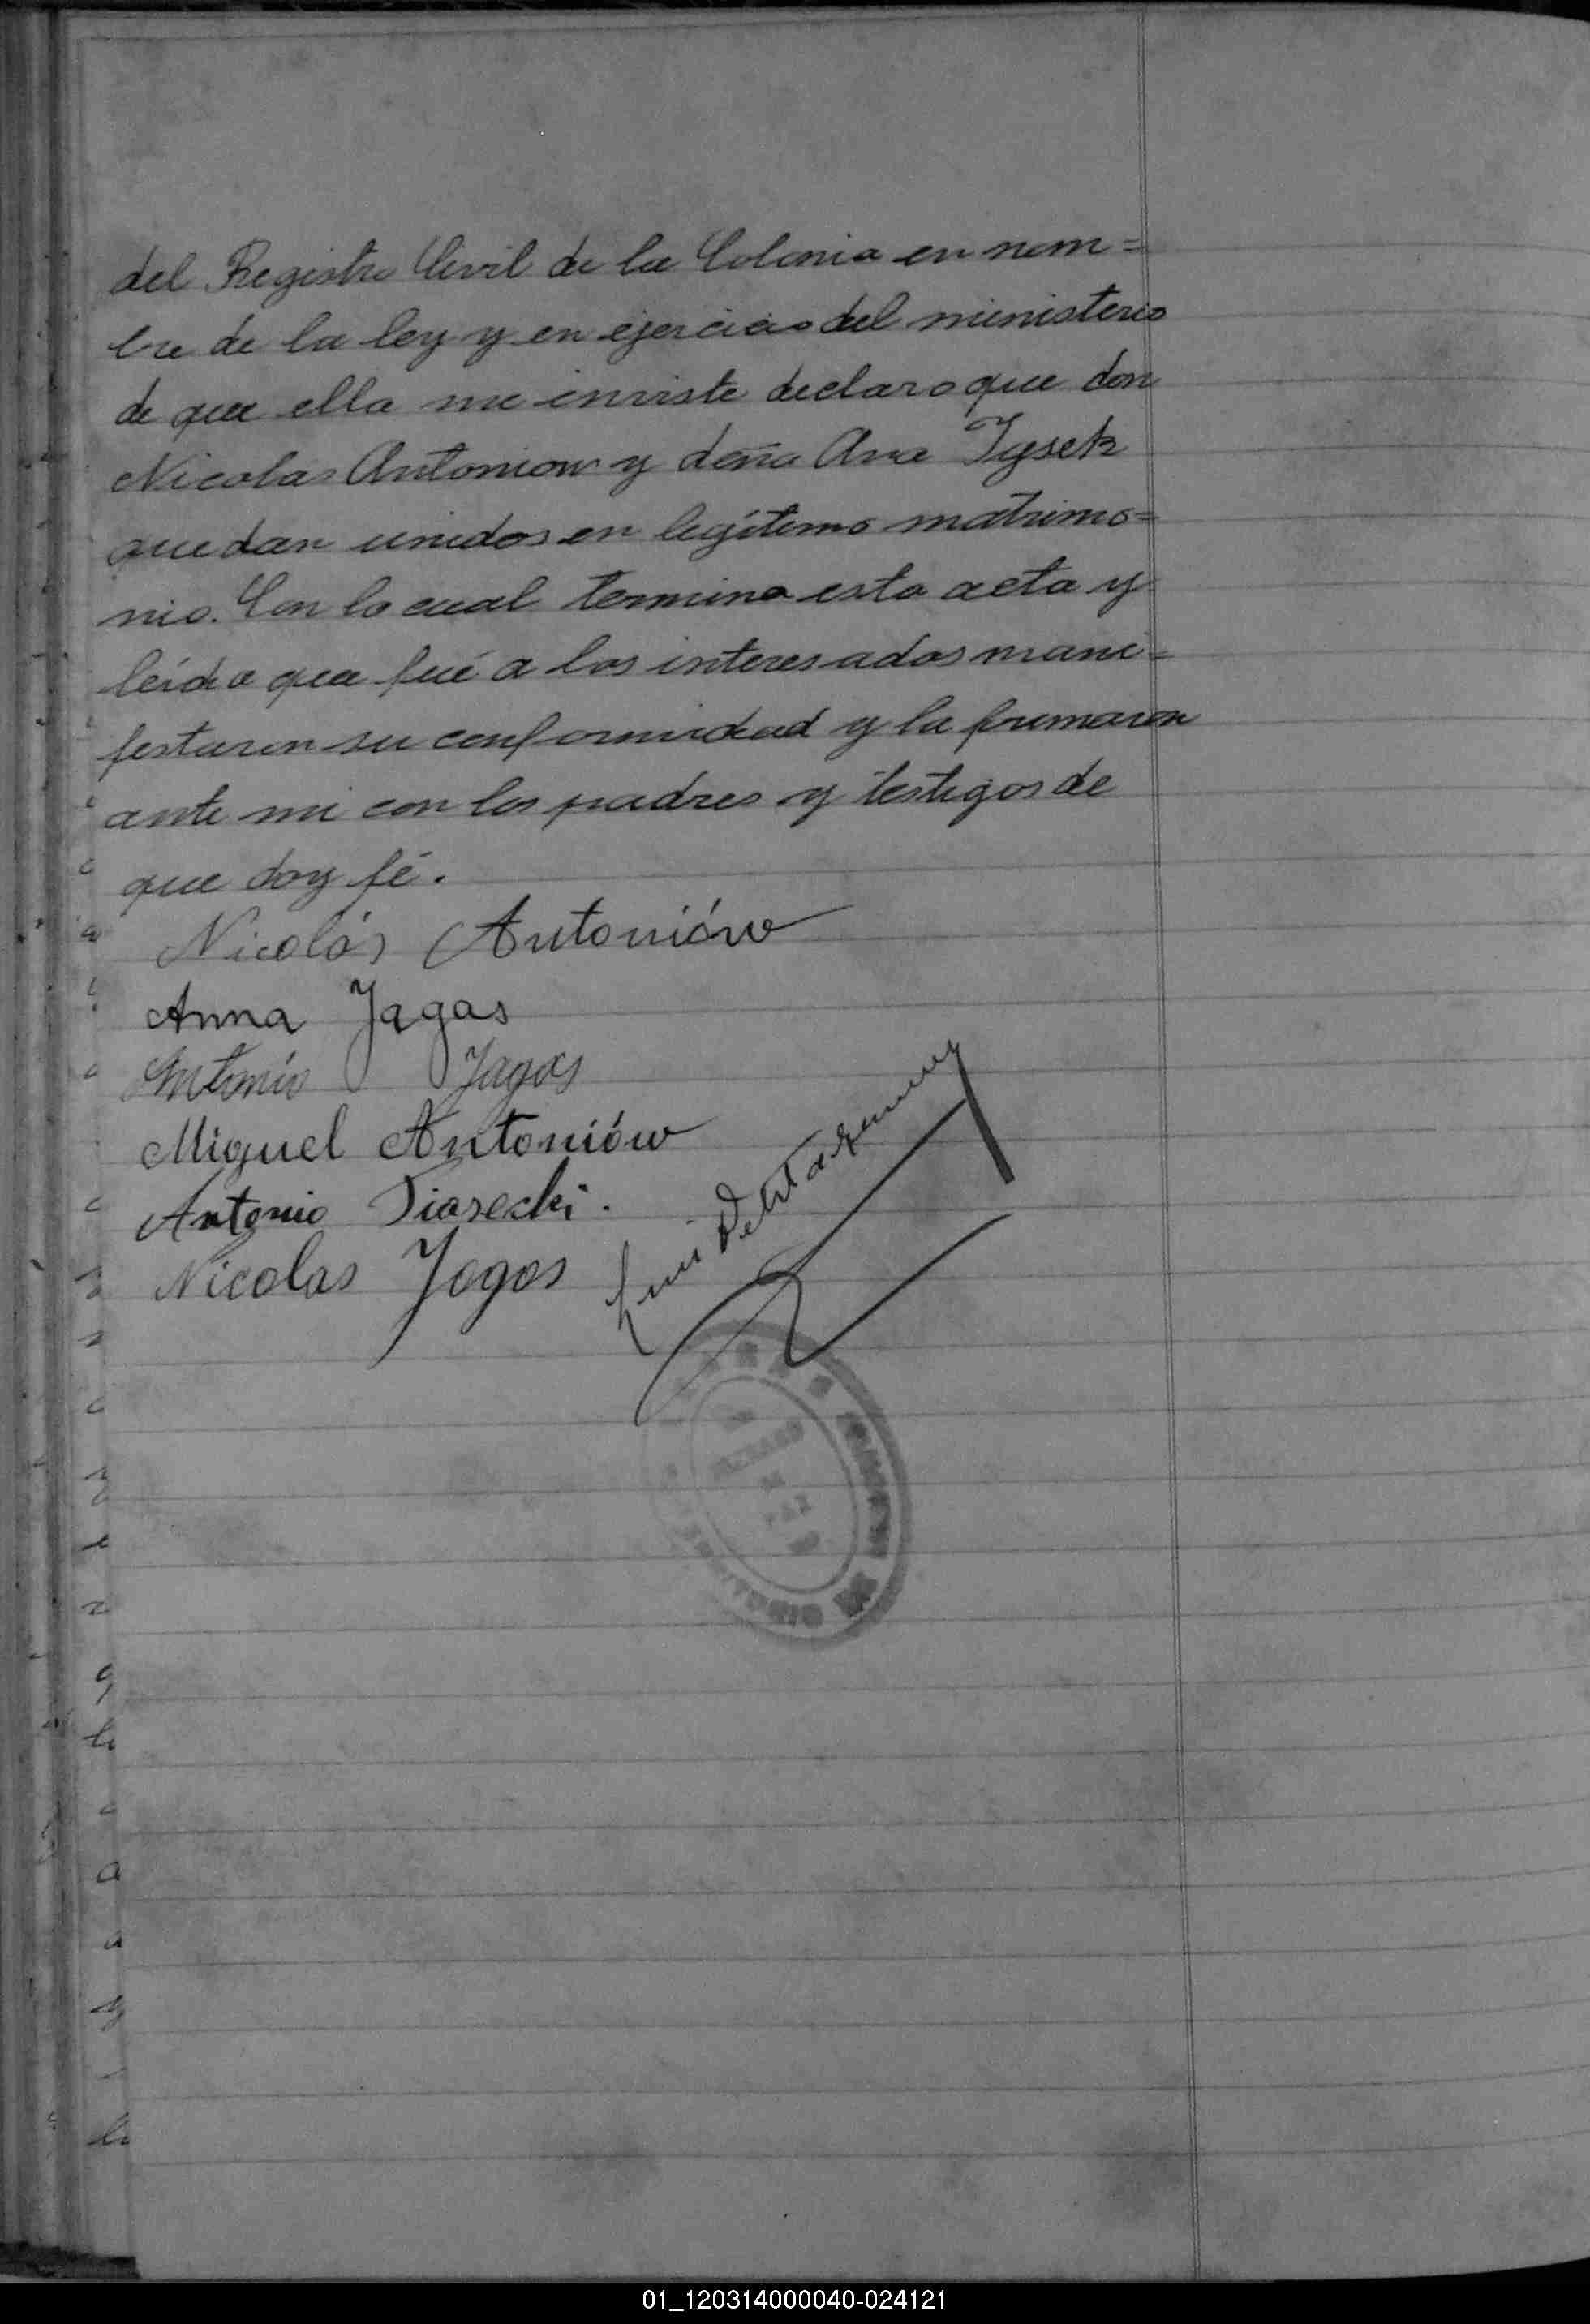 del Registro Civil de la Colonia en nom=
bre de la ley y en ejercicio del ministerio
de que ella me inviste declaro que don
Nicolas Antoniow y doña Ana Tysek
quedan unidos en legítimo matrimo=
nio. Con lo cual termina esta acta y
leída que fué a los interesados mani=
festaron su conformidad y la firmaron
ante mi con los padres y testigos de
que doy fé.
Nicolás Antoniów
Anna Jagas
Antonio Jagas
Miguel Antoniów
Antonio Piasecki.
Nicolas Jagas
Luis
01_120314000040-024121